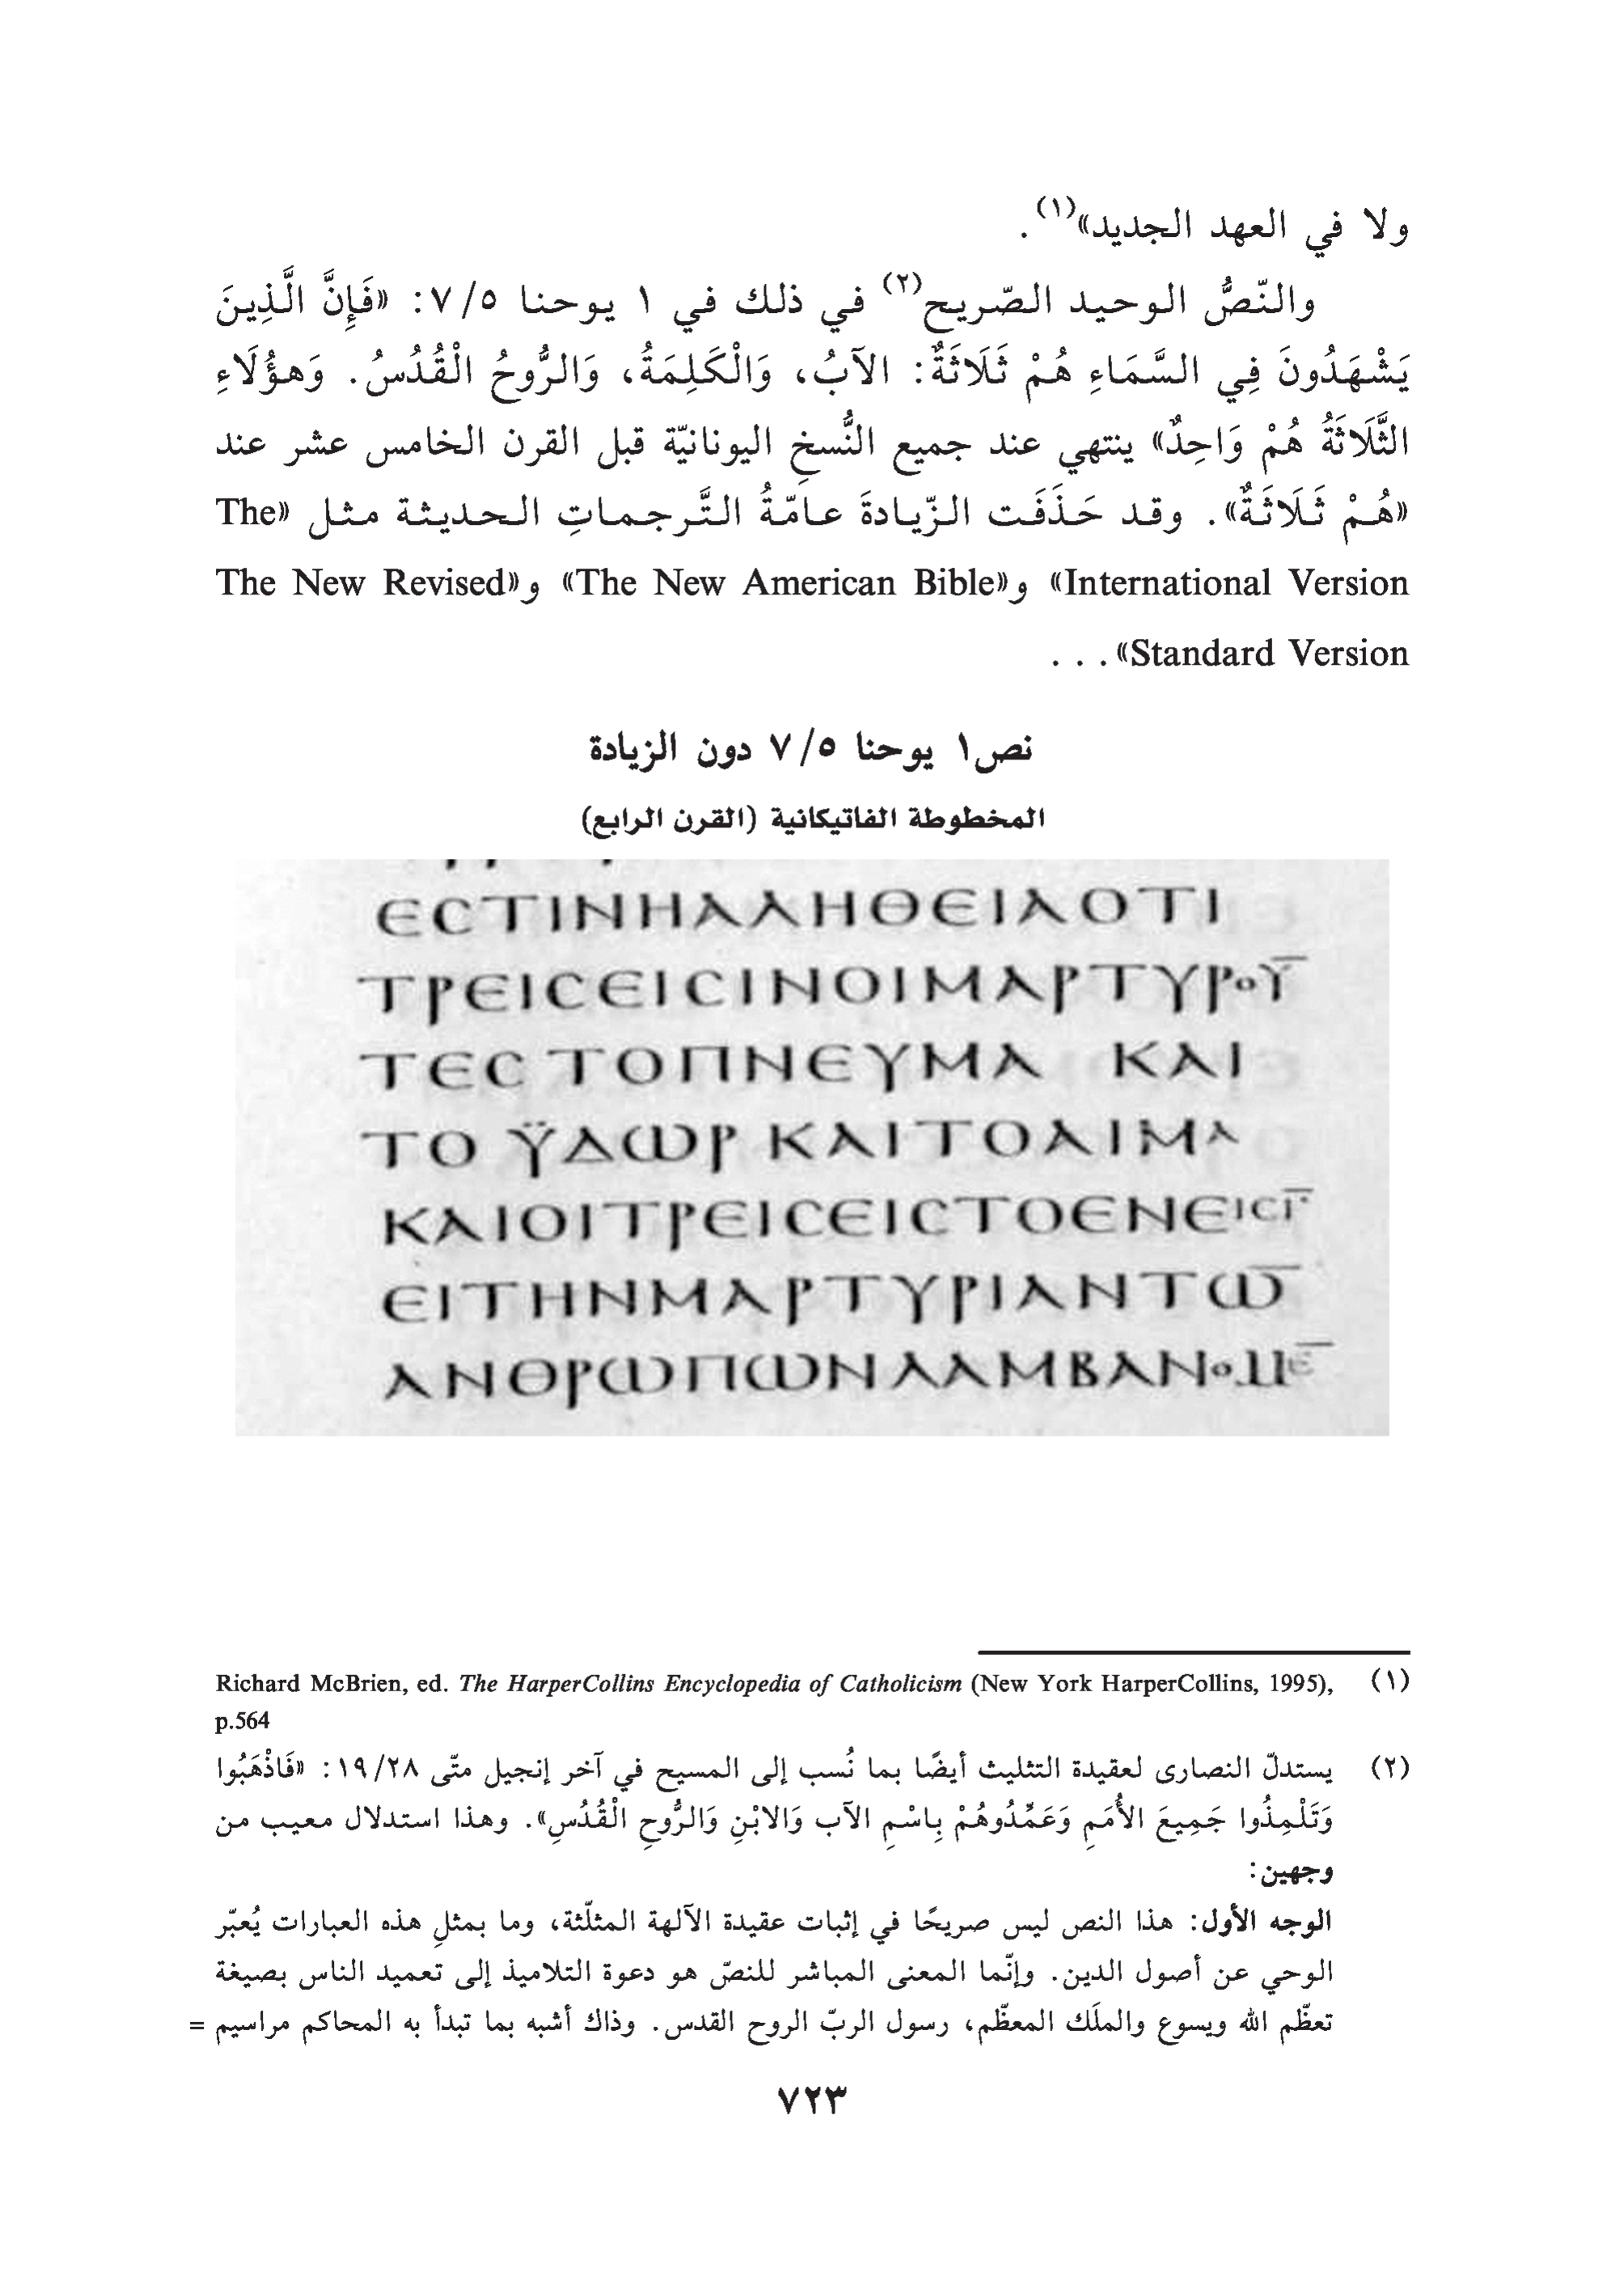 ولا في العهد الجديد»(١).
والنّصُّ الوحيد الصّريح(٢) في ذلك في ١ يوحنا ٥/ ٧: «فَإِنَّ الَّذِينَ
يَشْهَدُونَ فِي السَّمَاءِ هُمْ ثَلَاثَةٌ: الآبُ، وَالْكَلِمَةُ، وَالرُّوحُ الْقُدُسُ. وَهؤُلَاءِ
الثَّلَاثَةُ هُمْ وَاحِدٌ» ينتهي عند جميع النُّسخِ اليونانيّة قبل القرن الخامس عشر عند
«هُمْ ثَلَاثَةٌ». وقد حَذَفَت الزّيادةَ عامّةُ التَّرجماتِ الحديثة مثل «The
International Version» و«The New American Bible» و«The New Revised
Standard Version»...
نص١ يوحنا ٥/ ٧ دون الزيادة
المخطوطة الفاتيكانية (القرن الرابع)
ΕϹΤΙΝΗΑΛΗΘΕΙΑΟΤΙ
ΤΡΕΙϹΕΙϹΙΝΟΙΜΑΡΤΥΡΟΥ̅
ΤΕϹ ΤΟΠΝΕΥΜΑ ΚΑΙ
ΤΟ ΫΔΩΡ ΚΑΙΤΟΑΙΜΑ
ΚΑΙΟΙΤΡΕΙϹΕΙϹΤΟΕΝΕΙϹΙ̅
ΕΙΤΗΝΜΑΡΤΥΡΙΑΝΤΩ̅
ΑΝΘΡΩΠΩΝΛΑΜΒΑΝΟΜΕ̅
(١) Richard McBrien, ed. The HarperCollins Encyclopedia of Catholicism (New York HarperCollins, 1995),
p.564
(٢) يستدلّ النصارى لعقيدة التثليث أيضًا بما نُسب إلى المسيح في آخر إنجيل متّى ٢٨/ ١٩: «فَاذْهَبُوا
وَتَلْمِذُوا جَمِيعَ الأُمَمِ وَعَمِّدُوهُمْ بِاسْمِ الآب وَالابْنِ وَالرُّوحِ الْقُدُسِ». وهذا استدلال معيب من
وجهين:
الوجه الأول: هذا النص ليس صريحًا في إثبات عقيدة الآلهة المثلّثة، وما بمثلِ هذه العبارات يُعبّر
الوحي عن أصول الدين. وإنّما المعنى المباشر للنصّ هو دعوة التلاميذ إلى تعميد الناس بصيغة
تعظّم الله ويسوع والملَك المعظّم، رسول الربّ الروح القدس. وذاك أشبه بما تبدأ به المحاكم مراسيم =
٧٢٣